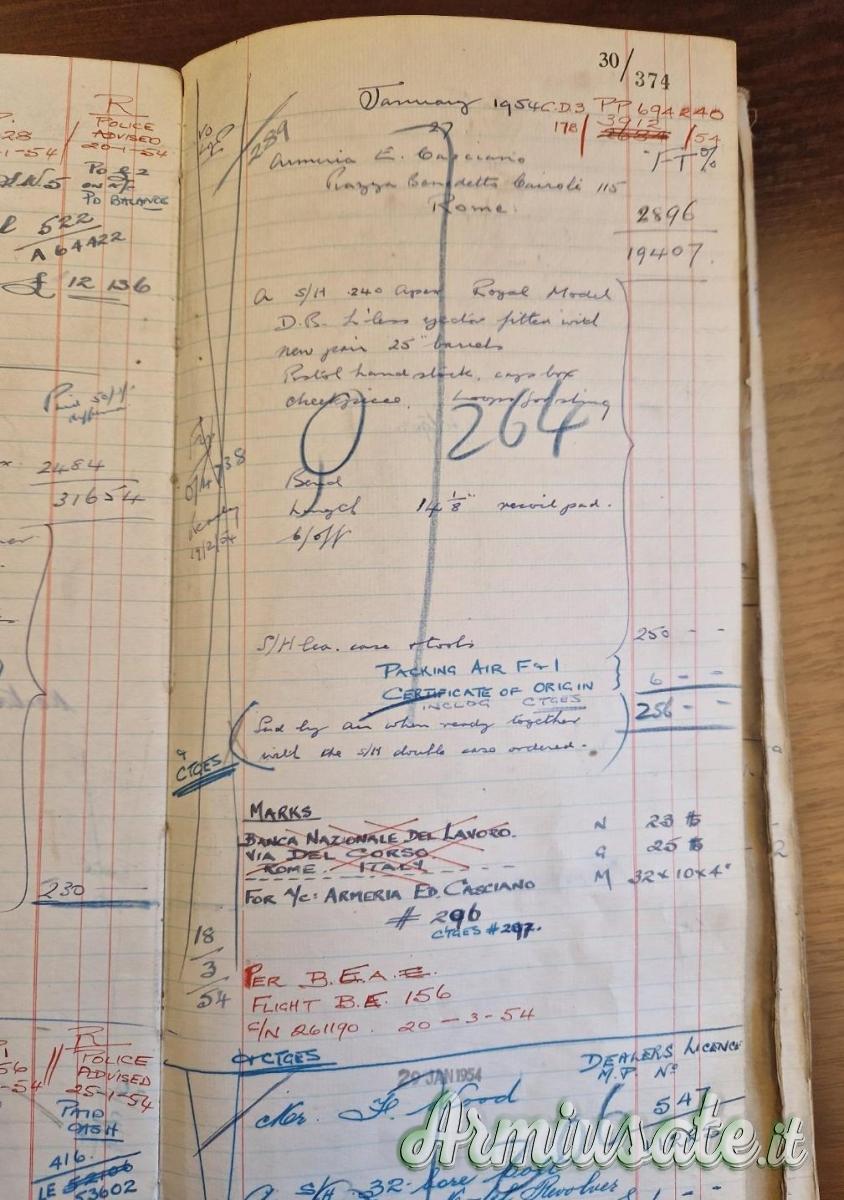 30/374
January 1954 C.D.3 PP 694240
178/ 3912 /54
289
27
FT%
Armeria E. Casciano
Piazza Benedetto Cairoli 115
Rome.
2896
19407
A S/H .240 Apex Royal Model
D.B. H'less ejector fitted with
new pair 25" barrels
Pistol hand stock, caps box
cheekpiece. Loops for sling
264
Bend
Length 14 1/8" recoil pad.
C/off
S/H lea. case & tools
250 - -
PACKING AIR F & I
CERTIFICATE OF ORIGIN
6 - -
INCLDG CTGES
256 - -
Send by air when ready together
with the S/H double case ordered.
& CTGES
MARKS
BANCA NAZIONALE DEL LAVORO.
VIA DEL CORSO.
ROME. ITALY
FOR A/C: ARMERIA ED. CASCIANO
N 23
G 25
M 32 x 10 x 4"
# 296
CTGES # 297.
18/3/54
PER B.E.A.
FLIGHT B.E. 156
C/N 261190. 20-3-54
& CTGES
29 JAN 1954
DEALERS LICENCE
M.P. No
547
Mr. F. Wood
A S/H .32 bore
Revolver
R
POLICE
ADVISED
20-1-54
28
1-54
PO BALANCE
522
A 64422
£ 12 136
2484
31654
230
R
POLICE
ADVISED
25-1-54
PAID
CASH
416.
53602
Armiusate.it